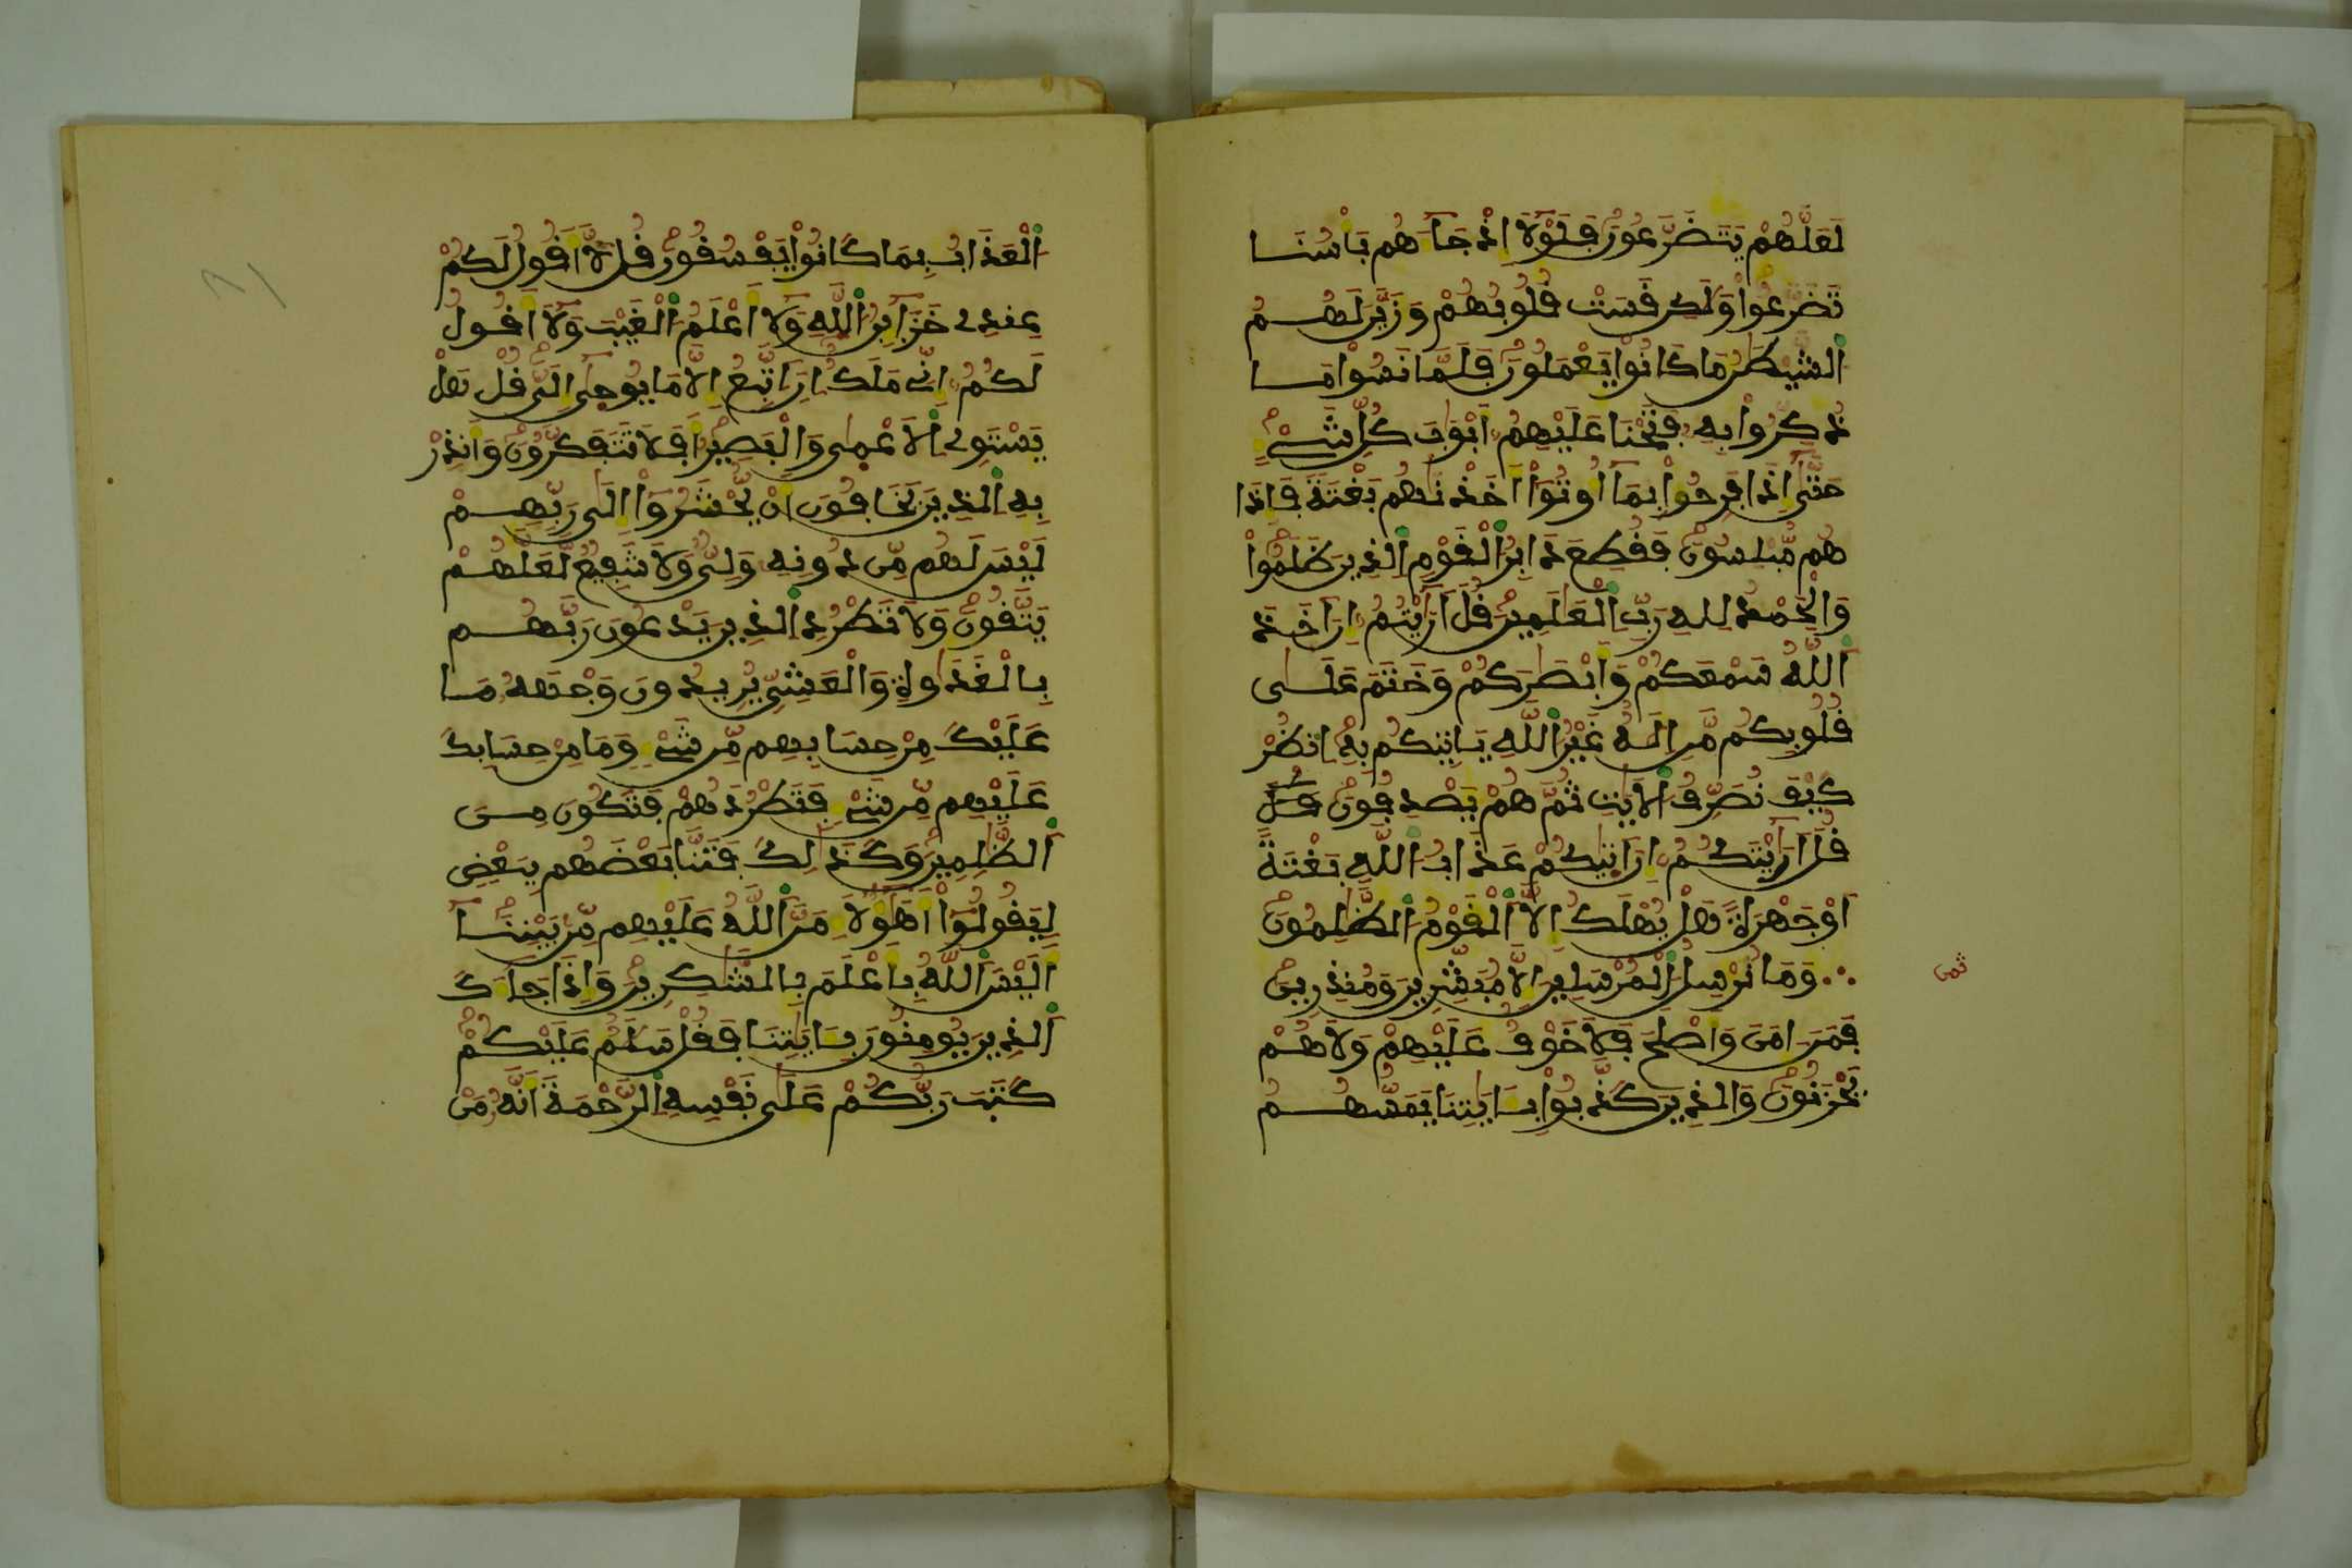 لَعَلَّهُمْ يَتَضَرَّعُونَ فَلَوْلَا إِذْ جَآءَهُم بَأْسُنَا
تَضَرَّعُوا وَلَكِن قَسَتْ قُلُوبُهُمْ وَزَيَّنَ لَهُمُ
الشَّيْطَنُ مَا كَانُوا يَعْمَلُونَ فَلَمَّا نَسُوا مَا
ذُكِّرُوا بِهِ فَتَحْنَا عَلَيْهِمُ أَبْوَبَ كُلِّ شَيْءٍ
حَتَّى إِذَا فَرِحُوا بِمَا أُوتُوا أَخَذْنَهُم بَغْتَةً فَإِذَا
هُم مُّبْلِسُونَ فَقُطِعَ دَابِرُ الْقَوْمِ الذِينَ ظَلَمُوا
وَالْحَمْدُ لِلهِ رَبِّ الْعَلَمِينَ قُلَ اَرَايْتُمُ إِنَ اَخَذَ
اللَّهُ سَمْعَكُمْ وَأَبْصَرَكُمْ وَخَتَمَ عَلَى
قُلُوبِكُم مَّنِ الَهٌ غَيْرُ اللَّهِ يَاتِيكُم بِهِ انظُرْ
كَيْفَ نُصَرِّفُ الَايَتِ ثُمَّ هُمْ يَصْدِفُونَ قُلَ
قُلَ اَرَايْتَكُمُ إِنَ اَتَيكُمْ عَذَابُ اللَّهِ بَغْتَةً
أَوْ جَهْرَةً هَلْ يُهْلَكُ إِلَّا الْقَوْمُ الظَّلِمُونَ
وَمَا نُرْسِلُ الْمُرْسَلِينَ إِلَّا مُبَشِّرِينَ وَمُنذِرِينَ
فَمَنَ امَنَ وَأَصْلَحَ فَلَا خَوْفٌ عَلَيْهِمْ وَلَا هُمْ
يَحْزَنُونَ وَالذِينَ كَذَّبُوا بِـَايَتِنَا يَمَسُّهُمُ
ثمن
الْعَذَابُ بِمَا كَانُوا يَفْسُقُونَ قُل لَّا أَقُولُ لَكُمْ
عِندِے خَزَآئِنُ اللَّهِ وَلَا أَعْلَمُ الْغَيْبَ وَلَا أَقُولُ
لَكُمُ إِنِّے مَلَكٌ اِنَ اَتَّبِعُ إِلَّا مَا يُوحَى إِلَيَّ قُلْ هَلْ
يَسْتَوِے الَاعْمَى وَالْبَصِيرُ أَفَلَا تَتَفَكَّرُونَ وَأَنذِرْ
بِهِ الذِينَ يَخَافُونَ أَنْ يُّحْشَرُوا إِلَى رَبِّهِمْ
لَيْسَ لَهُم مِّن دُونِهِ وَلِيٌّ وَلَا شَفِيعٌ لَّعَلَّهُمْ
يَتَّقُونَ وَلَا تَطْرُدِ الذِينَ يَدْعُونَ رَبَّهُم
بِالْغَدَوةِ وَالْعَشِيِّ يُرِيدُونَ وَجْهَهُ مَا
عَلَيْكَ مِنْ حِسَابِهِم مِّن شَيْءٍ وَمَا مِنْ حِسَابِكَ
عَلَيْهِم مِّن شَيْءٍ فَتَطْرُدَهُمْ فَتَكُونَ مِنَ
الظَّلِمِينَ وَكَذَلِكَ فَتَنَّا بَعْضَهُم بِبَعْضٍ
لِيَقُولُوا أَهَؤُلَآءِ مَنَّ اللَّهُ عَلَيْهِم مِّن بَيْنِنَا
أَلَيْسَ اللَّهُ بِأَعْلَمَ بِالشَّكِرِينَ وَإِذَا جَآءَكَ
الذِينَ يُومِنُونَ بِـَايَتِنَا فَقُلْ سَلَمٌ عَلَيْكُمْ
كَتَبَ رَبُّكُمْ عَلَى نَفْسِهِ الرَّحْمَةَ أَنَّهُ مَنْ